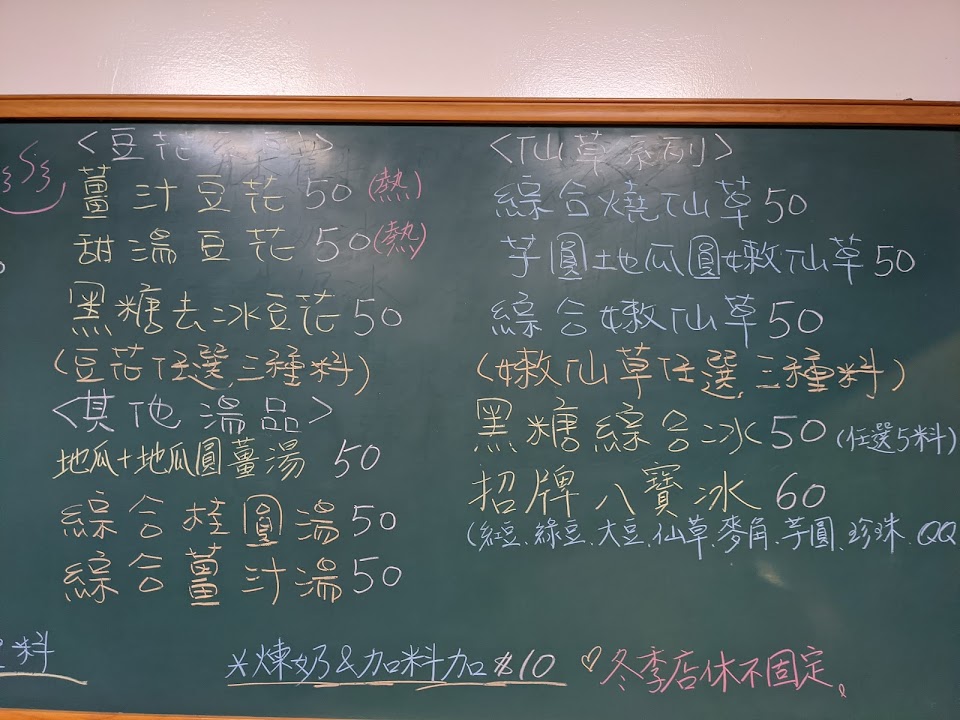 <豆花系列>
薑汁豆花 50 (熱)
甜湯豆花 50 (熱)
黑糖去冰豆花 50
(豆花任選三種料)
<其他湯品>
地瓜+地瓜圓薑湯 50
綜合桂圓湯 50
綜合薑汁湯 50
<仙草系列>
綜合燒仙草 50
芋圓地瓜圓嫩仙草 50
綜合嫩仙草 50
(嫩仙草任選三種料)
黑糖綜合冰 50 (任選5料)
招牌八寶冰 60
(紅豆、綠豆、大豆、仙草、麥角、芋圓、珍珠、QQ
料
*煉奶&加料加$10
♡冬季店休不固定。